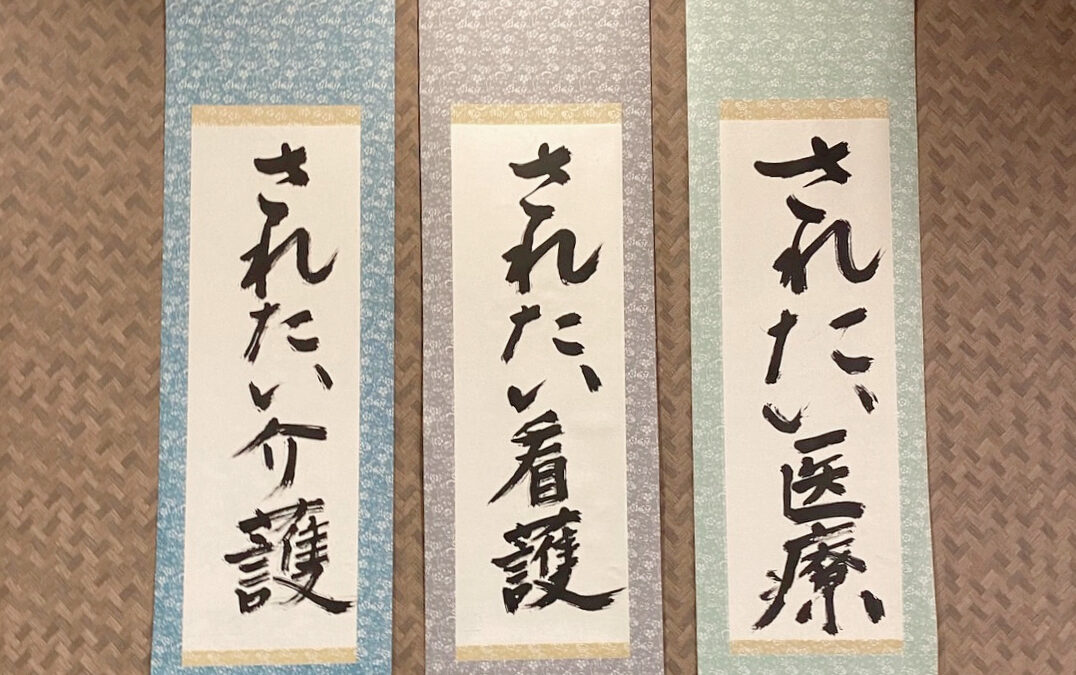 されたい医療
されたい看護
されたい介護